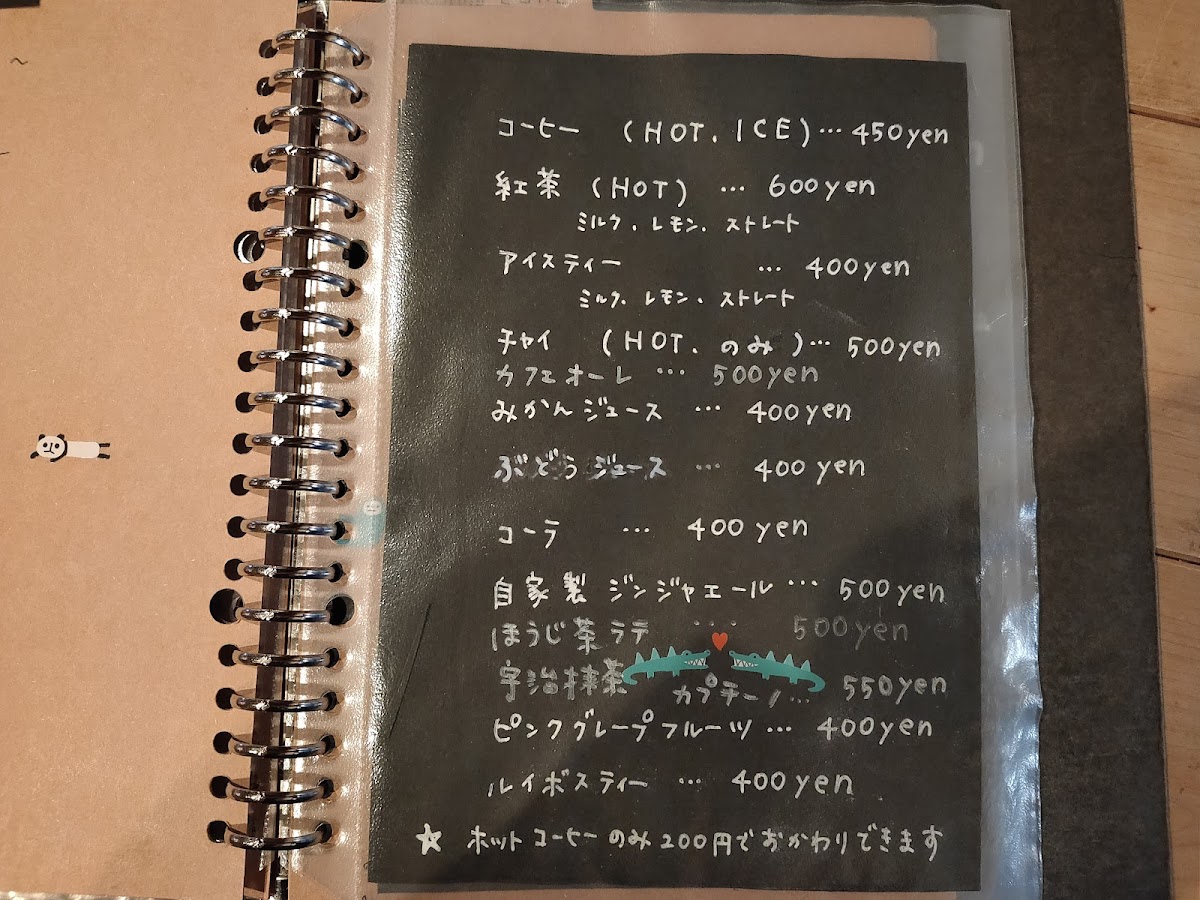 コーヒー (HOT. ICE)… 450yen
紅茶 (HOT) … 600yen
ミルク. レモン. ストレート
アイスティー … 400yen
ミルク. レモン. ストレート
チャイ (HOT. のみ)… 500yen
カフェオーレ … 500yen
みかんジュース … 400yen
ぶどうジュース … 400yen
コーラ … 400yen
自家製ジンジャエール … 500yen
ほうじ茶ラテ … 500yen
宇治抹茶カプチーノ… 550yen
ピンクグレープフルーツ … 400yen
ルイボスティー … 400yen
☆ ホットコーヒーのみ200円でおかわりできます